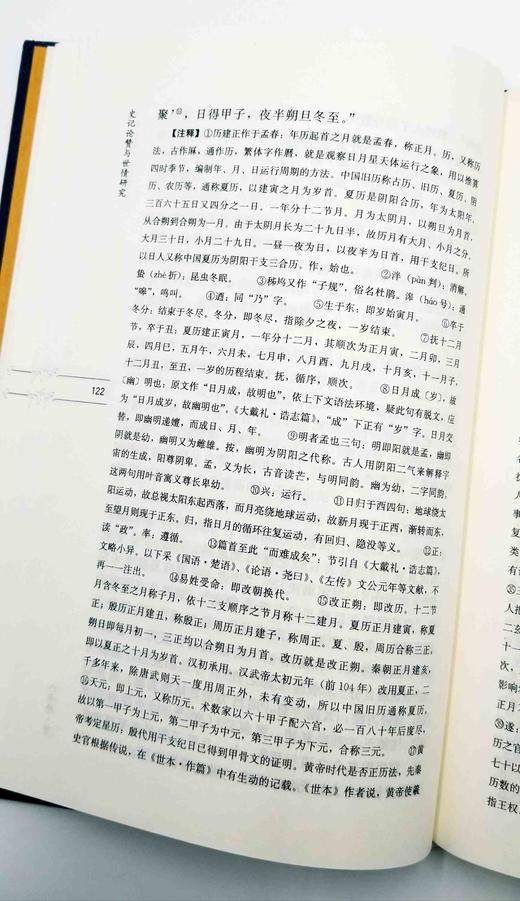 史记论赞与世情研究
聚’㉝，日得甲子，夜半朔旦冬至。”
【注释】①历建正作于孟春：年历起首之月就是孟春，称正月。历，又称历
法，古作厤，通作历，繁体字作曆，就是观察日月星天体运行之象，用以推算
四时季节，编制年、月、日运行周期的方法。中国旧历称古历、旧历、夏历、阴
历、农历等，通称夏历，以建寅之月为岁首。夏历是阴阳合历，年为太阳年，
三百六十五日又四分之一日。一年分十二节月。月为太阴月，以朔旦为月首，
从合朔到合朔为一月。由于太阴月长为二十九日半，故历月有大月、小月之分，
大月三十日，小月二十九日。一昼一夜为日，以夜半为日首，用干支纪日。所
以日人又称中国夏历为阴阳干支三合历。作，始也。 ②泮（pàn 判）：消解，
蛰（zhé 折）：昆虫冬眠。 ③秭鸠又作“子规”，俗名杜鹃。滜（háo 号）：通
“嗥”，鸣叫。 ④逎：同“乃”字。 ⑤生于东：即岁始寅月。 ⑥卒于
冬分：结束于冬尽。冬分，即冬尽，指除夕之夜，一岁结束。 ⑦抚十二月
节，卒于丑：夏历建正寅月，一年分十二月，其顺次为正月寅，二月卯，三月
辰，四月巳，五月午，六月未，七月申，八月酉，九月戌，十月亥，十一月子，
十二月丑，至丑，一岁的历程结束。抚，循序，顺次。 ⑧日月成〔岁〕，故
〔幽〕明也：原文作“日月成，故明也”，依上下文语法环境，疑此句有脱文，应
为“日月成岁，故幽明也”。《大戴礼·诰志篇》，“成”下正有“岁”字。日月交
替，即幽明递嬗，而成日、月、年。 ⑨明者孟也三句：明即阳就是孟，幽即
阴就是幼，幽明又为雌雄。按，幽明为阴阳之代称。古人用阴阳二气来解释宇
宙的生成，阳尊阴卑。孟，义为长，古音读芒，与明同韵。幽为幼，二字同韵，
这两句用叶音寓义尊长卑幼。 ⑩兴：运行。 ⑪日归于西四句：地球绕太
阳运动，故总视太阳东起西落，而月亮绕地球运动，故新月现于正西，渐转而东，
至望月则现于正东。归，指日月的循环往复运动，有回归、隐没等义。 ⑫正：
读“政”。率：遵循。 ⑬篇首至此“而难成矣”：节引自《大戴礼·诰志篇》，
文略小异。以下采《国语·楚语》、《论语·尧曰》、《左传》文公元年等文献，不
再一一注出。 ⑭易姓受命：即改朝换代。 ⑮改正朔：即改历。十二节
月含冬至之月称子月，依十二支顺序之节月称十二建月。夏历正月建寅，称夏
正；殷历正月建丑，称殷正；周历正月建子，称周正。夏、殷、周历合称三正，
朔日即每月初一，三正均以合朔日为月首。改历就是改正朔。秦朝正月建亥，
即以夏正之十月为岁首。汉初承用。汉武帝太初元年（前104年）改用夏正，二
千多年来，除唐武则天一度用周正外，未有变动，所以中国旧历通称夏历，
⑯天元：即上元，又称历元。术数家以六十甲子配六宫，必一百八十年后度尽，
故以第一甲子为上元，第二甲子为中元，第三甲子为下元，合称三元。 ⑰黄
帝考定星历：殷代用干支纪日已得到甲骨文的证明。黄帝时代是否正历法，先秦
史官根据传说，在《世本·作篇》中有生动的记载。《世本》作者说，黄帝使羲
122
指王权